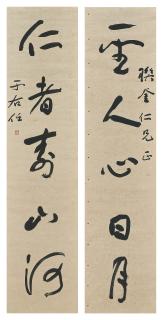 聖人心日月
聯奎仁兄正
仁者壽山河
于右任